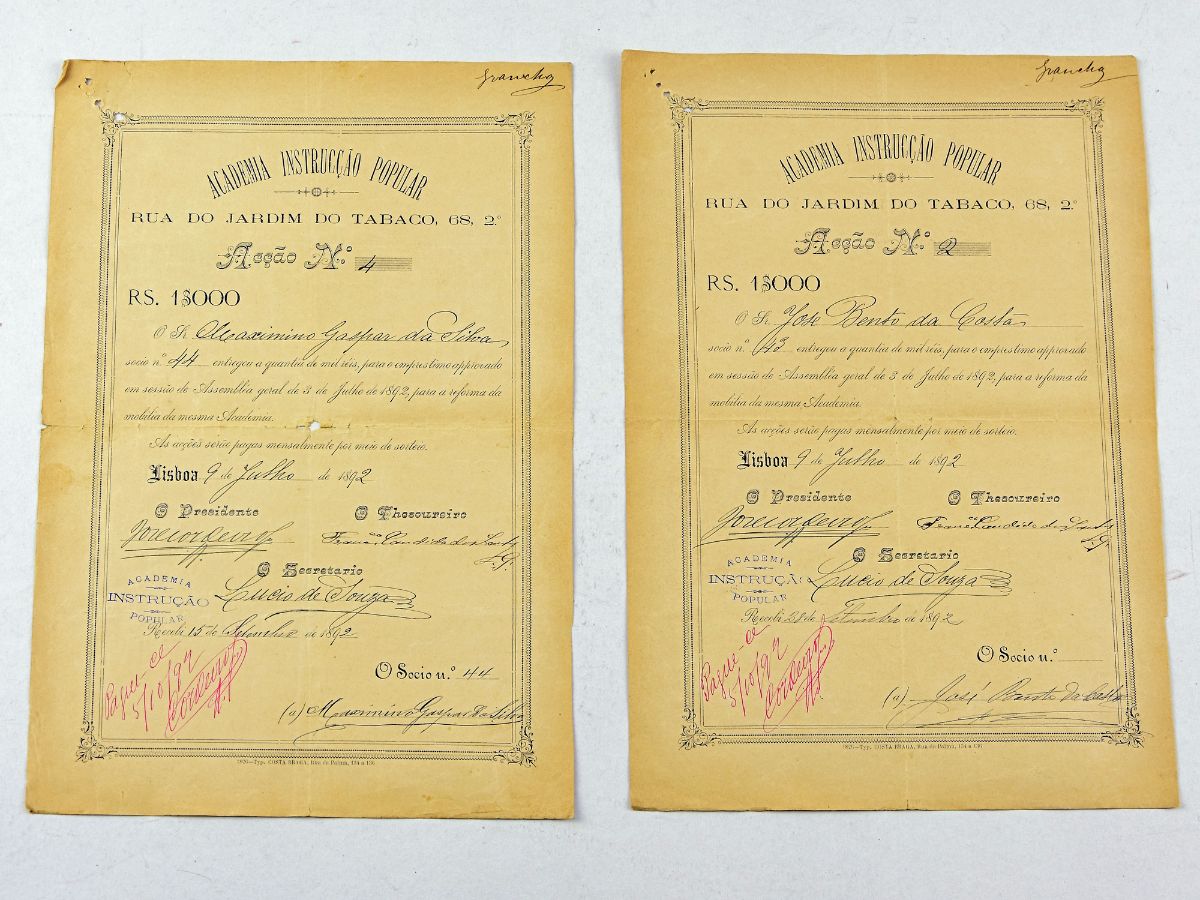 ACADEMIA INSTRUCÇÃO POPULAR
RUA DO JARDIM DO TABACO, 68, 2.º
Acção N.º 4
RS. 1$000
O Sr. Maximino Gaspar da Silva
socio n.º 44 entregou a quantia de mil réis, para o emprestimo approvado
em sessão de Assembléa geral de 3 de Julho de 1892, para a reforma da
mobilia da mesma Academia.
As acções serão pagas mensalmente por meio de sorteio.
Lisboa 9 de Julho de 1892
O Presidente O Thesoureiro
O Secretario
Lucio de Souza
ACADEMIA
INSTRUÇÃO
POPULAR
Recebi 15 de Setembro de 1892
Pague-se
5/10/92
Cordeiro
O Socio n.º 44
(a) Maximino Gaspar da Silva
Typ. COSTA BRAGA, Rua da Palma, 134 a 136
ACADEMIA INSTRUCÇÃO POPULAR
RUA DO JARDIM DO TABACO, 68, 2.º
Acção N.º 2
RS. 1$000
O Sr. José Bento da Costa
socio n.º 13 entregou a quantia de mil réis, para o emprestimo approvado
em sessão de Assembléa geral de 3 de Julho de 1892, para a reforma da
mobilia da mesma Academia.
As acções serão pagas mensalmente por meio de sorteio.
Lisboa 9 de Julho de 1892
O Presidente O Thesoureiro
O Secretario
Lucio de Souza
ACADEMIA
INSTRUÇÃO
POPULAR
Recebi 28 de Setembro de 1892
Pague-se
5/10/92
Cordeiro
O Socio n.º
(a) José Bento da Costa
Typ. COSTA BRAGA, Rua da Palma, 134 a 136